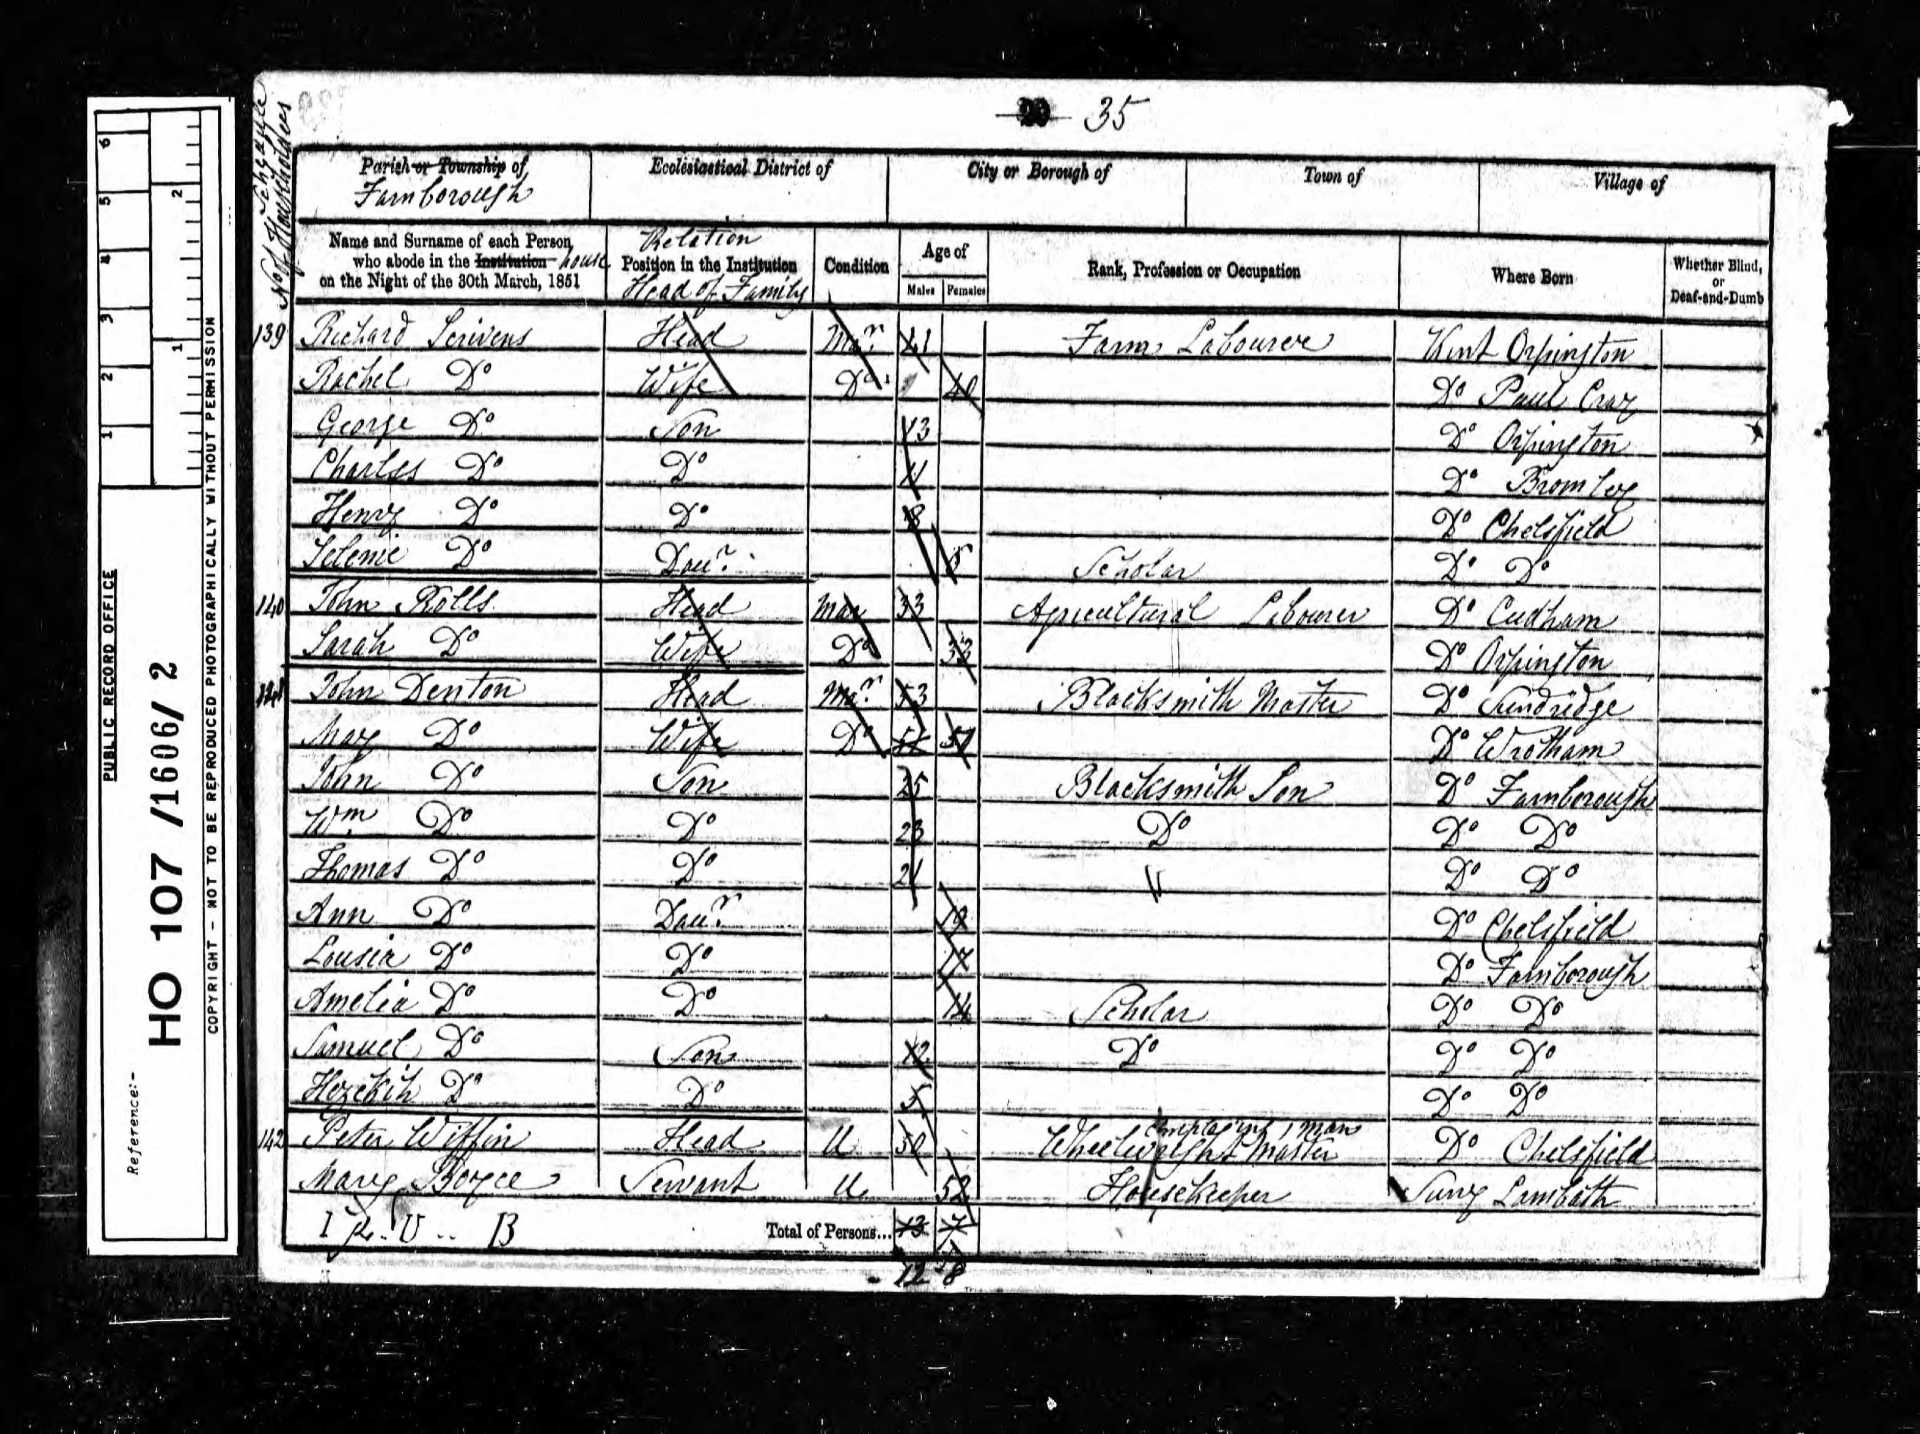 35
Parish or Township of Ecclesiastical District of City or Borough of Town of Village of
Farnborough
No of Householders Schedule
Name and Surname of each Person who abode in the Institution house on the Night of the 30th March, 1851
Relation Position in the Institution Head of Family
Condition
Age of Males Females
Rank, Profession or Occupation
Where Born
Whether Blind, or Deaf-and-Dumb
139 Richard Scrivens Head Mar 41 Farm Labourer Kent Orpington
Rachel Do Wife Do 40 Do Paul Cray
George Do Son 13 Do Orpington
Charles Do Do 11 Do Bromley
Henry Do Do 8 Do Chelsfield
Selenie Do Daur 5 Scholar Do Do
140 John Rolls Head Mar 33 Agricultural Labourer Do Cudham
Sarah Do Wife Do 33 Do Orpington
141 John Denton Head Mar 53 Blacksmith Master Do Sundridge
Mary Do Wife Do 51 51 Do Wrotham
John Do Son 25 Blacksmith Son Do Farnborough
Wm Do Do 23 Do Do Do
Thomas Do Do 21 " Do Do
Ann Do Daur 19 Do Chelsfield
Lousia Do Do 17 Do Farnborough
Amelia Do Do 14 Scholar Do Do
Samuel Do Son 12 Do Do Do
Hezekih Do Do 5 Do Do
142 Peter Wiffin Head U 50 Wheelwright Master employing 1 man Do Chelsfield
Mary Boyce Servant U 52 Housekeeper Surry Lambath
I U B Total of Persons... 13 7
12 8
PUBLIC RECORD OFFICE
Reference:-
HO 107 /1606/ 2
COPYRIGHT - NOT TO BE REPRODUCED PHOTOGRAPHICALLY WITHOUT PERMISSION
1 2 3 4 5 6
1 2